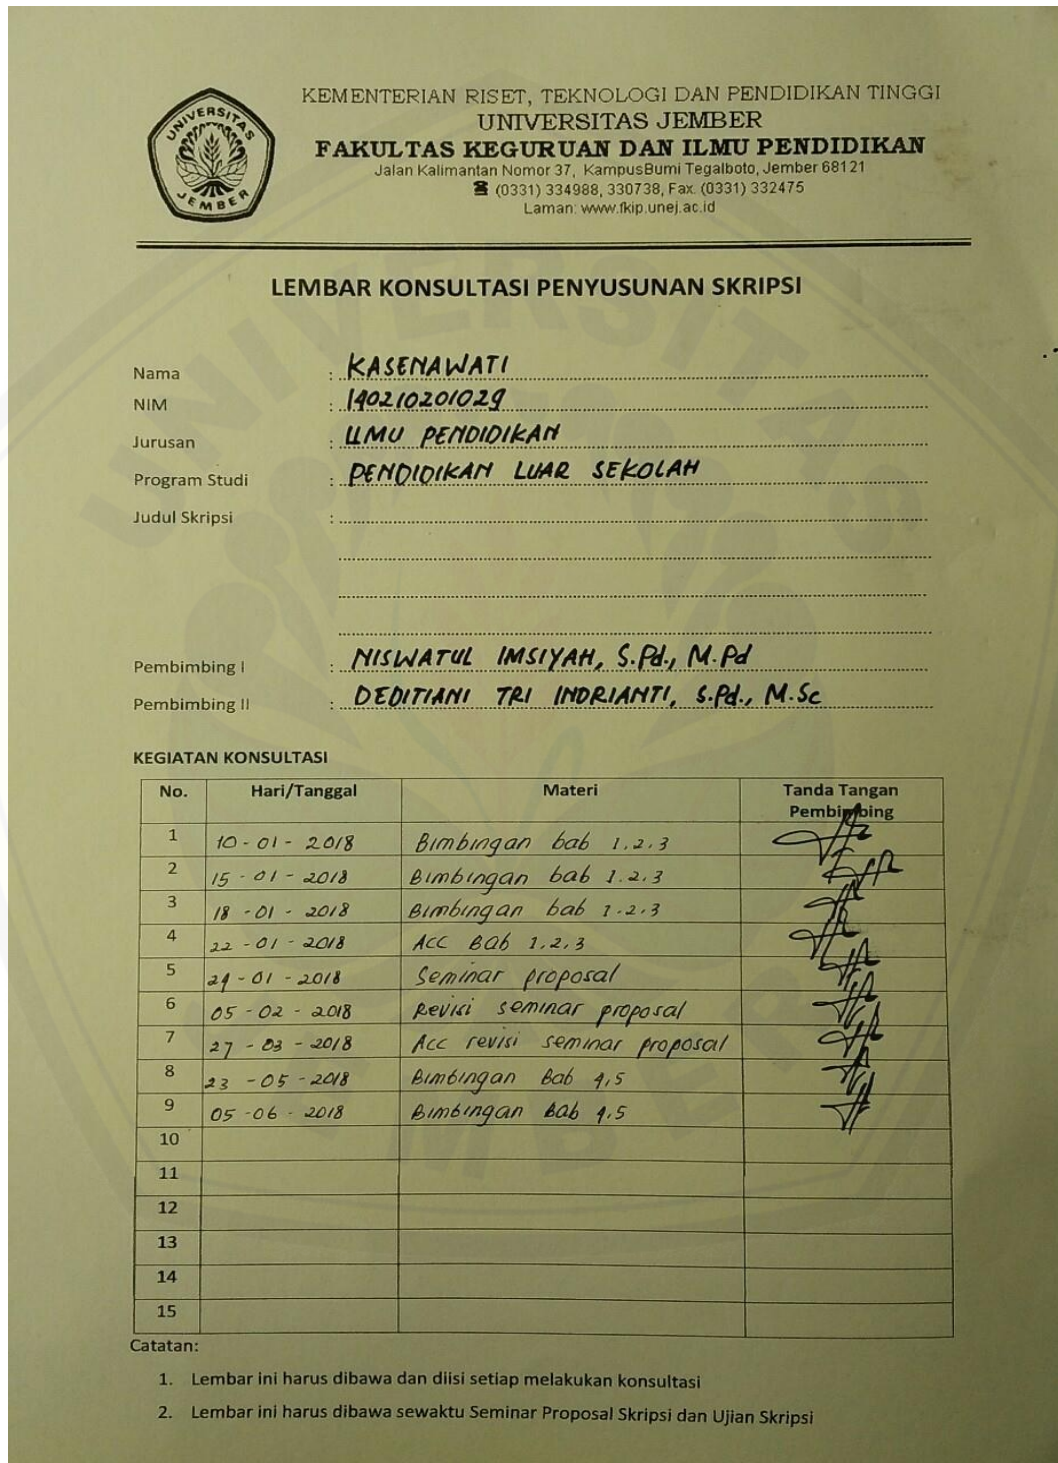 KEMENTERIAN RISET, TEKNOLOGI DAN PENDIDIKAN TINGGI
UNIVERSITAS JEMBER
FAKULTAS KEGURUAN DAN ILMU PENDIDIKAN
Jalan Kalimantan Nomor 37, KampusBumi Tegalboto, Jember 68121
☎ (0331) 334988, 330738, Fax. (0331) 332475
Laman: www.fkip.unej.ac.id
UNIVERSITAS
JEMBER
LEMBAR KONSULTASI PENYUSUNAN SKRIPSI
Nama : KASENAWATI
NIM : 140210201029
Jurusan : ILMU PENDIDIKAN
Program Studi : PENDIDIKAN LUAR SEKOLAH
Judul Skripsi :
Pembimbing I : NISWATUL IMSIYAH, S.Pd., M.Pd
Pembimbing II : DEDITIANI TRI INDRIANTI, S.Pd., M.Sc
KEGIATAN KONSULTASI
No. Hari/Tanggal Materi Tanda Tangan Pembimbing
1 10-01-2018 Bimbingan bab 1.2.3
2 15-01-2018 Bimbingan bab 1.2.3
3 18-01-2018 Bimbingan bab 1.2.3
4 22-01-2018 Acc Bab 1,2,3
5 29-01-2018 Seminar proposal
6 05-02-2018 Revisi seminar proposal
7 27-03-2018 Acc revisi seminar proposal
8 23-05-2018 Bimbingan Bab 4,5
9 05-06-2018 Bimbingan Bab 4,5
10
11
12
13
14
15
Catatan:
1. Lembar ini harus dibawa dan diisi setiap melakukan konsultasi
2. Lembar ini harus dibawa sewaktu Seminar Proposal Skripsi dan Ujian Skripsi